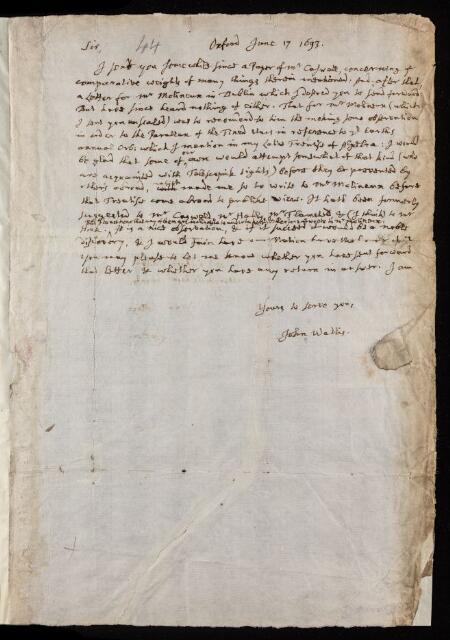 Sir, 44 Oxford June 17 1693.
I sent you some while since a Paper of Mr Caswell, concerning ye
comparative weights of many things therein mentioned. And, after that
a Letter for Mr Molineux in Dublin which I desired you to send forward.
But have since heard nothing of either. That for Mr Molineux (which
I sent you unsealed) was to recommend to him the making some observations
in order to the Parallax of the Fixed stars in reference to ye Earths
annual Orb; which I mention in my Latin Treatise of Algebra. I would
be glad that some of our own would attempt somewhat of that kind (who
are acquainted with Telescopick sights) before they be prevented by
others abroad, which made me so to write to Mr Molineux before
that Treatise come abroad to publike view. It hath been formerly
suggested to Mr Caswell, Mr Hally, Mr Flamsted, & (I think) to Mr
Hook. It is a nice observation, & if it succeed it would be a noble
discovery, & I would fain have our Nation have the
You may please to let me know whether you have sent forward
that letter & whether you have any return in answer. I am
Yours to serve you,
John Wallis.